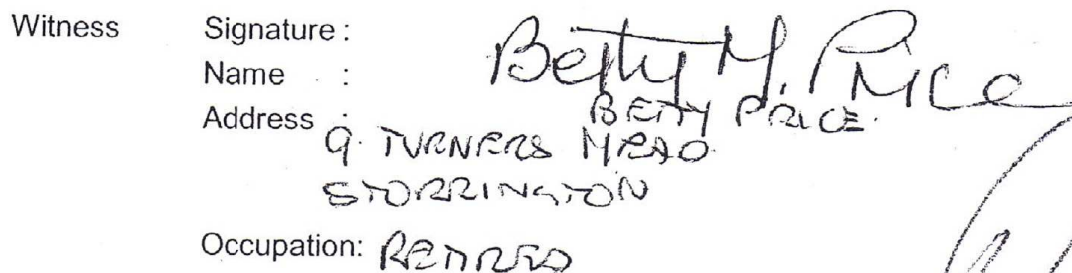 Witness Signature : Betty M. Price
Name : BETTY PRICE.
Address :
9. TURNERS MEAD
STORRINGTON
Occupation: RETIRED